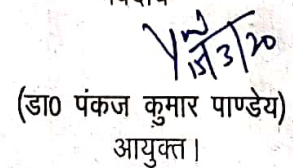 15/3/20
(डा0 पंकज कुमार पाण्डेय)
आयुक्त।